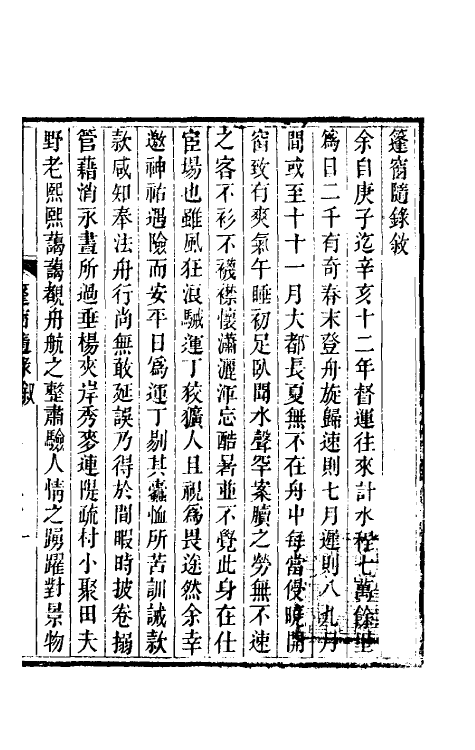 篷窗隨錄敘
余自庚子迄辛亥十二年督運往來計水程七萬餘里
爲日二千有奇春末登舟旋歸速則七月遲則八九月
間或至十十一月大都長夏無不在舟中每當侵曉開
窗致有爽氣午睡初足臥聞水聲罕案牘之勞無不速
之客不衫不襪襟懷瀟灑渾忘酷暑並不覺此身在仕
宦場也雖風狂浪駴運丁狡獷人且視爲畏途然余幸
邀神祐遇險而安平日爲運丁剔其蠹恤所苦訓誡款
款咸知奉法舟行尚無敢延誤乃得於閒暇時披卷搦
管藉消永晝所過垂楊夾岸秀麥連隄疏村小聚田夫
野老熙熙蕩蕩觀舟航之整肅驗人情之踴躍對景物
篷窗隨錄敘